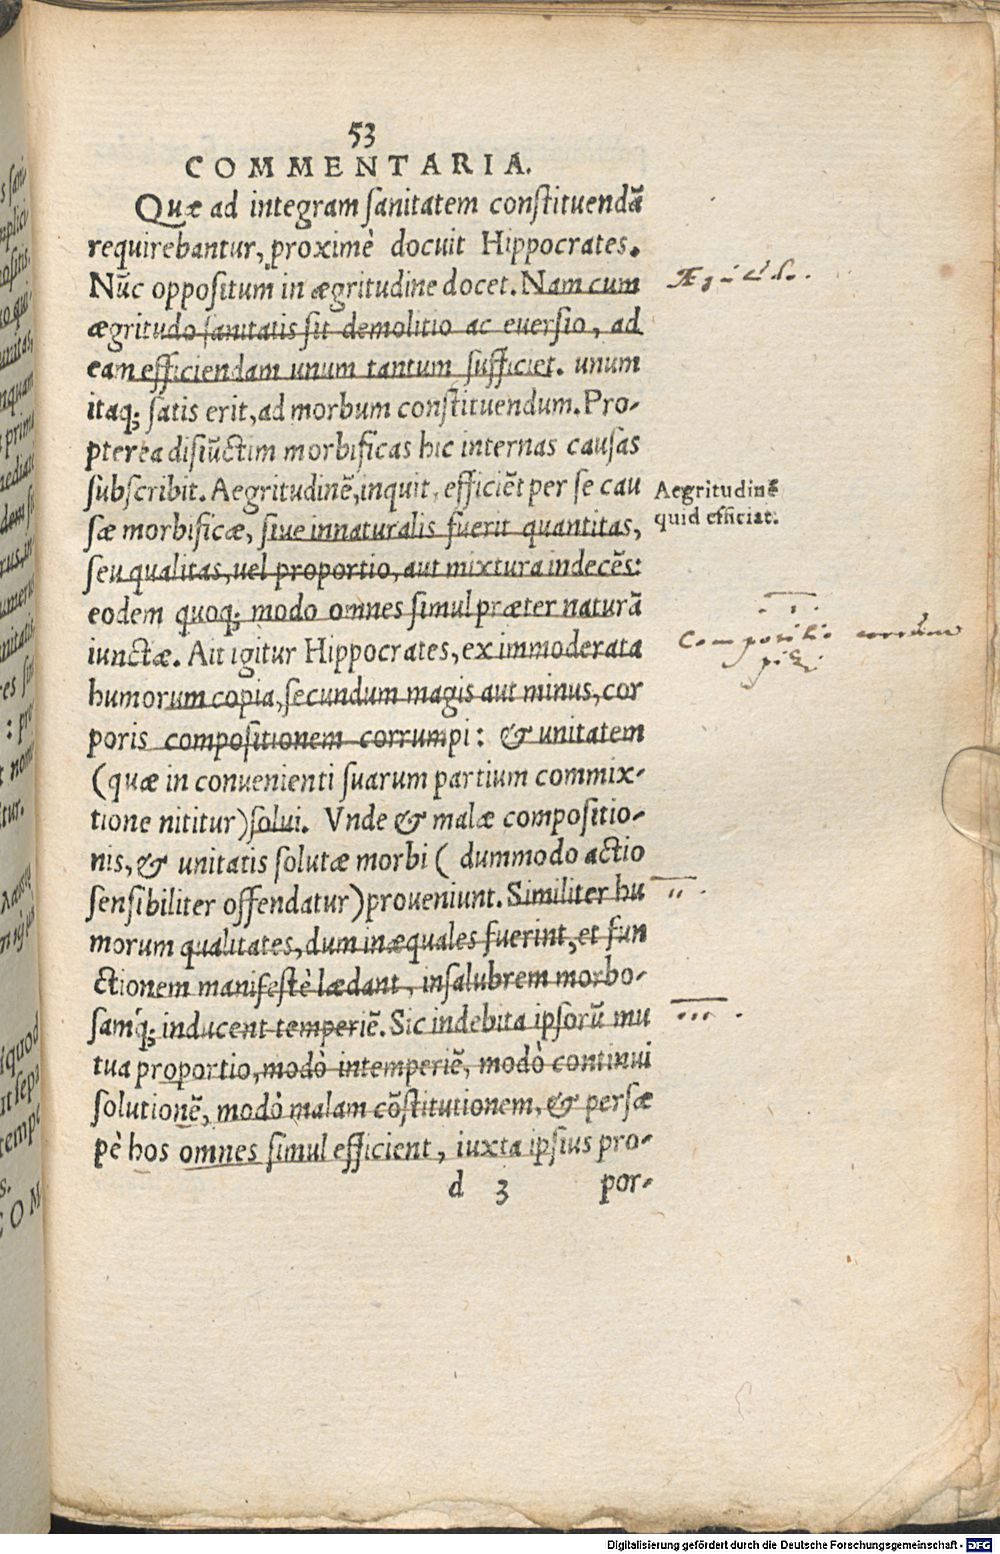 53
COMMENTARIA.
Quæ ad integram sanitatem constituendā
requirebantur, proximè docuit Hippocrates.
Nūc oppositum in ægritudine docet. Nam cum
ægritudo sanitatis sit demolitio ac euersio, ad
eam efficiendam unum tantum sufficiet. unum
itaq; satis erit, ad morbum constituendum. Pro-
pterea disiūctim morbificas hic internas causas
subscribit. Aegritudinē, inquit, efficiēt per se cau
sæ morbificæ, siue innaturalis fuerit quantitas,
seu qualitas, uel proportio, aut mixtura indecēs:
eodem quoq; modo omnes simul præter naturā
iunctæ. Ait igitur Hippocrates, ex immoderata
humorum copia, secundum magis aut minus, cor
poris compositionem corrumpi: & unitatem
(quæ in conuenienti suarum partium commix-
tione nititur) solui. Vnde & malæ compositio-
nis, & unitatis solutæ morbi ( dummodo actio
sensibiliter offendatur) proueniunt. Similiter hu
morum qualitates, dum inæquales fuerint, et fun
ctionem manifestè lædant, insalubrem morbo-
samq́; inducent temperiē. Sic indebita ipsorū mu
tua proportio, modò intemperiē, modò continui
solutionē, modò malam cōstitutionem, & persæ
pè hos omnes simul efficient, iuxta ipsius pro-
d 3 por-
Aegritudinē
quid efficiat.
Compositio corrum
pitur